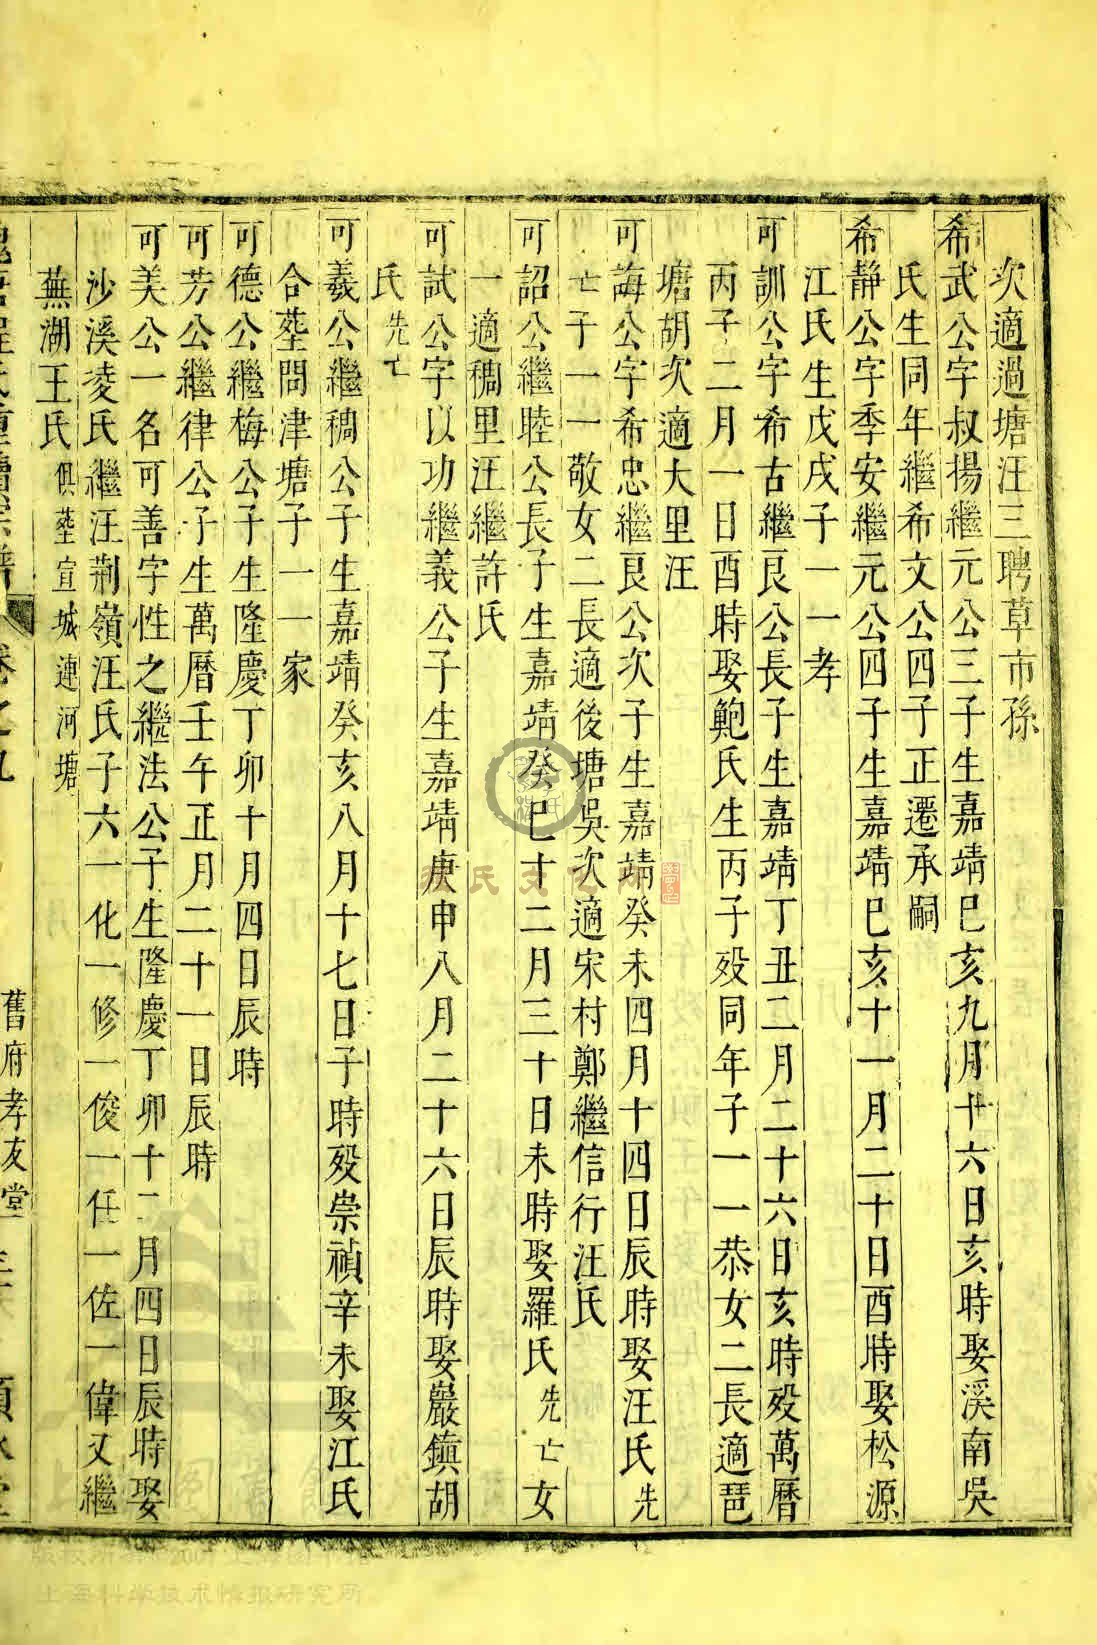 次適過塘汪三聘草市孫
希武公字叔揚繼元公三子生嘉靖巳亥九月十六日亥時娶溪南吳
氏生同年繼希文公四子正遷承嗣
希靜公字季安繼元公四子生嘉靖巳亥十一月二十日酉時娶松源
江氏生戊戌子一一孝
可訓公字希古繼艮公長子生嘉靖丁丑二月二十六日亥時殁萬曆
丙子二月一日酉時娶鮑氏生丙子殁同年子一一恭女二長適琶
塘胡次適大里汪
可誨公字希忠繼艮公次子生嘉靖癸未四月十四日辰時娶汪氏先
亡子一一敬女二長適後塘吳次適宋村鄭繼信行汪氏
可詔公繼睦公長子生嘉靖癸巳十二月三十日未時娶羅氏先亡女
一適稠里汪繼許氏
可試公字以功繼義公子生嘉靖庚申八月二十六日辰時娶巖鎮胡
氏先亡
可義公繼稠公子生嘉靖癸亥八月十七日子時殁崇禎辛未娶江氏
合塟問津塘子一一家
可德公繼梅公子生隆慶丁卯十月四日辰時
可芳公繼律公子生萬曆壬午正月二十一日辰時
可美公一名可善字性之繼法公子生隆慶丁卯十二月四日辰時娶
沙溪凌氏繼汪荆嶺汪氏子六一化一修一俊一任一佐一偉又繼
蕪湖王氏俱塟宣城連河塘
舊府孝友堂